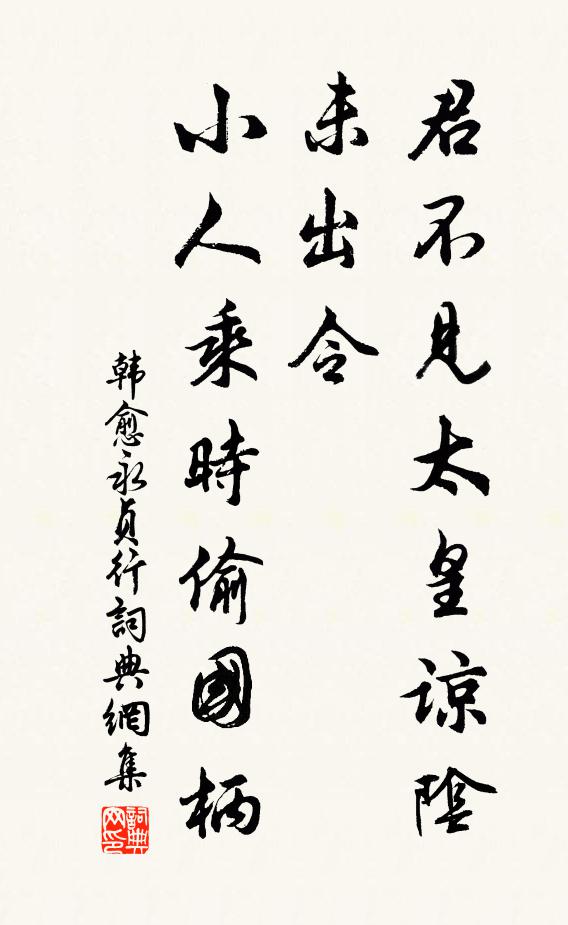 君不見太皇諒陰
未出令
小人乘時偷國柄
韓愈永貞行詞典網集
詞典網印